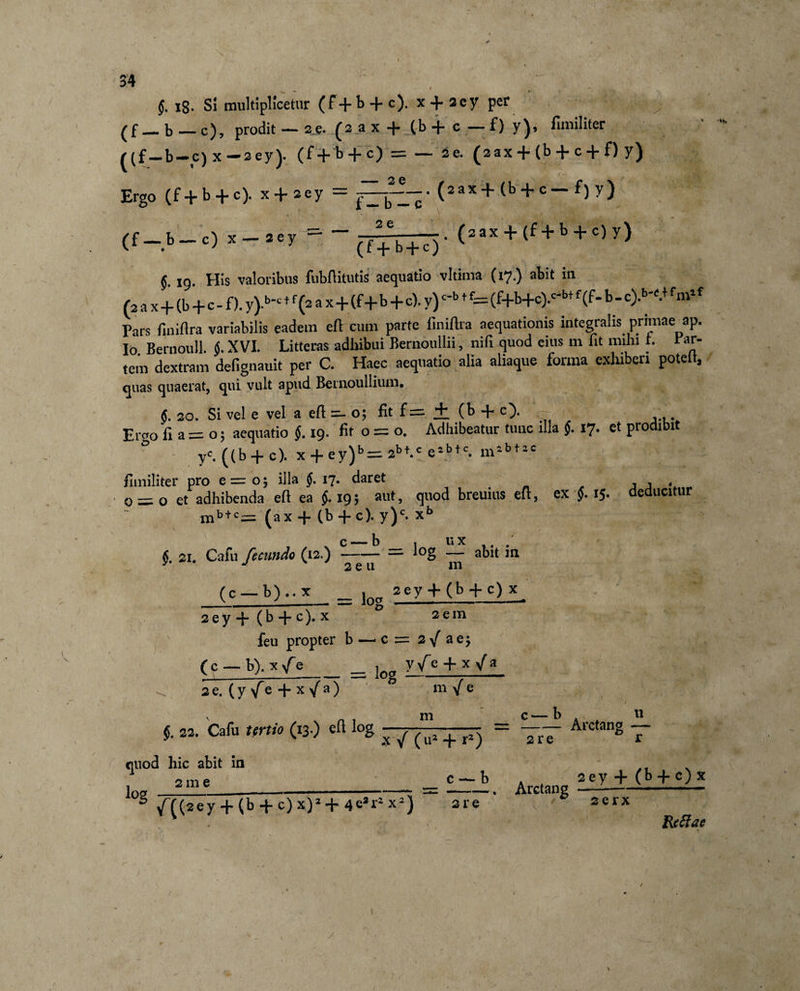 34
§. 18. Si multiplicetur (f + b + c). x + 2 c y per
(f — b — c), prodit — 2 e. (2 a x + (b + c — f) y), ſimiliter
((f — b — c) x — 2 e y). (f + b + c) = — 2 e. (2 a x + (b + c + f) y)
Ergo (f + b + c). x + 2 e y = — 2 e / f — b — c . (2 a x + (b + c — f) y)
(f — b — c) x — 2 e y = — 2 e / (f + b + c) . (2 a x + (f + b + c) y)
§. 19. His valoribus ſubſtitutis aequatio vltima (17.) abit in
(2 a x + (b + c - f). y).ᵇ⁻ᶜ⁺ᶠ(2 a x + (f + b + c). y)ᶜ⁻ᵇ⁺ᶠ = (f + b + c).ᶜ⁻ᵇ⁺ᶠ(f - b - c).ᵇ⁻ᶜ⁺ᶠ m²ᶠ
Pars ſiniſtra variabilis eadem eſt cum parte ſiniſtra aequationis integralis primae ap.
Io. Bernoull. §. XVI. Litteras adhibui Bernoullii, niſi quod eius m ſit mihi f. Par-
tem dextram deſignauit per C. Haec aequatio alia aliaque forma exhiberi poteſt,
quas quaerat, qui vult apud Bernoullium.
§. 20. Si vel e vel a eſt = o; ſit f = ± (b + c).
Ergo ſi a = o; aequatio §. 19. fit o = o. Adhibeatur tunc illa §. 17. et prodibit
yᶜ. ((b + c). x + e y)ᵇ = 2ᵇ⁺.ᶜ e²ᵇ⁺ᶜ. m²ᵇ⁺²ᶜ
ſimiliter pro e = o; illa §. 17. daret
o = o et adhibenda eſt ea §. 19; aut, quod breuius eſt, ex §. 15. deducitur
mᵇ⁺ᶜ = (a x + (b + c). y)ᶜ. xᵇ
§. 21. Caſu ſecundo (12.) c — b / 2 e u = log u x / m abit in
(c — b) .. x / 2 e y + (b + c). x = log 2 e y + (b + c) x / 2 e m
ſeu propter b — c = 2 √ a e;
(c — b). x √e / 2 e. (y √e + x √a) = log y √e + x √a / m √e
§. 22. Caſu tertio (13.) eſt log m / x √ (u² + r²) = c — b / 2 r e Arctang u / r
quod hic abit in
log 2 m e / √((2 e y + (b + c) x)² + 4 e² r² x²) = c — b / 2 r e . Arctang 2 e y + (b + c) x / 2 e r x
Rectae